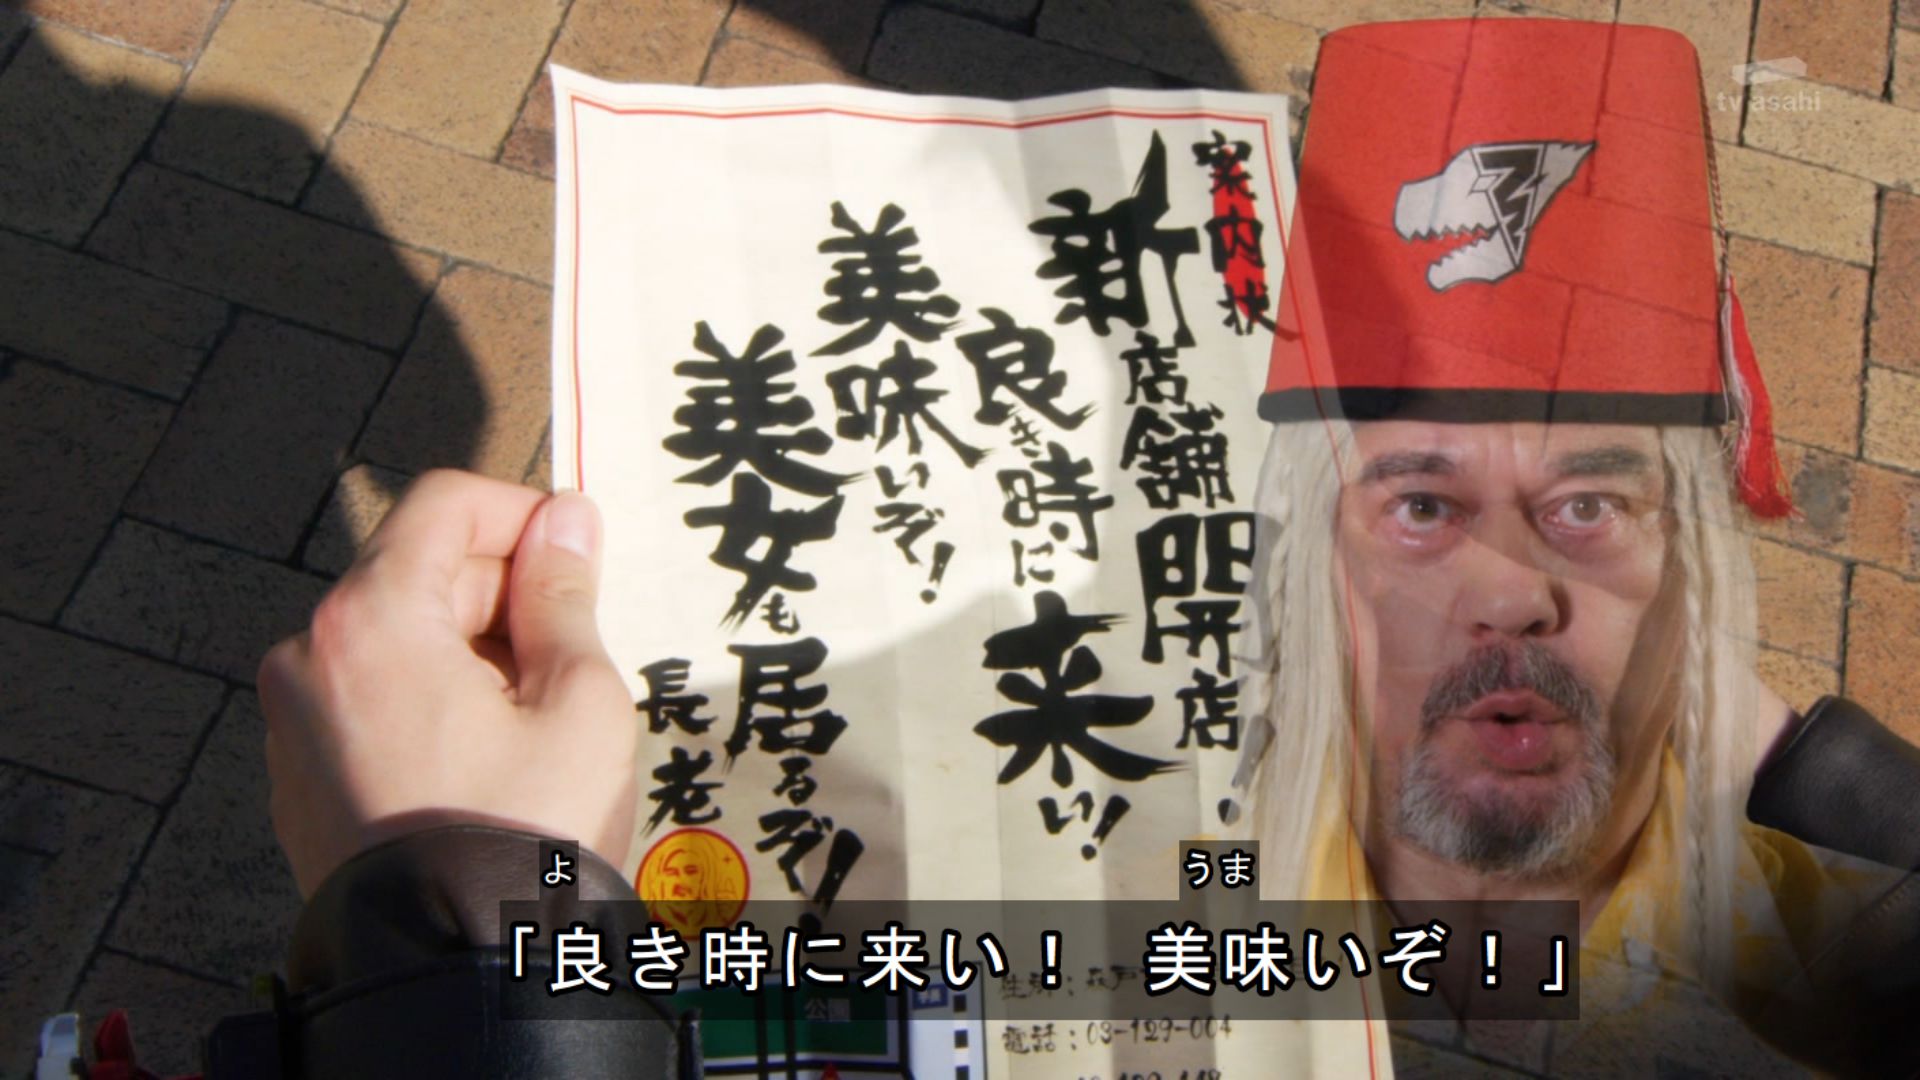 tv asahi
案内状
新店舗開店!
良き時に来い!
美味いぞ!
美女も居るぞ!
長老
公園
電話:03-129-004
よ うま
「良き時に来い! 美味いぞ!」